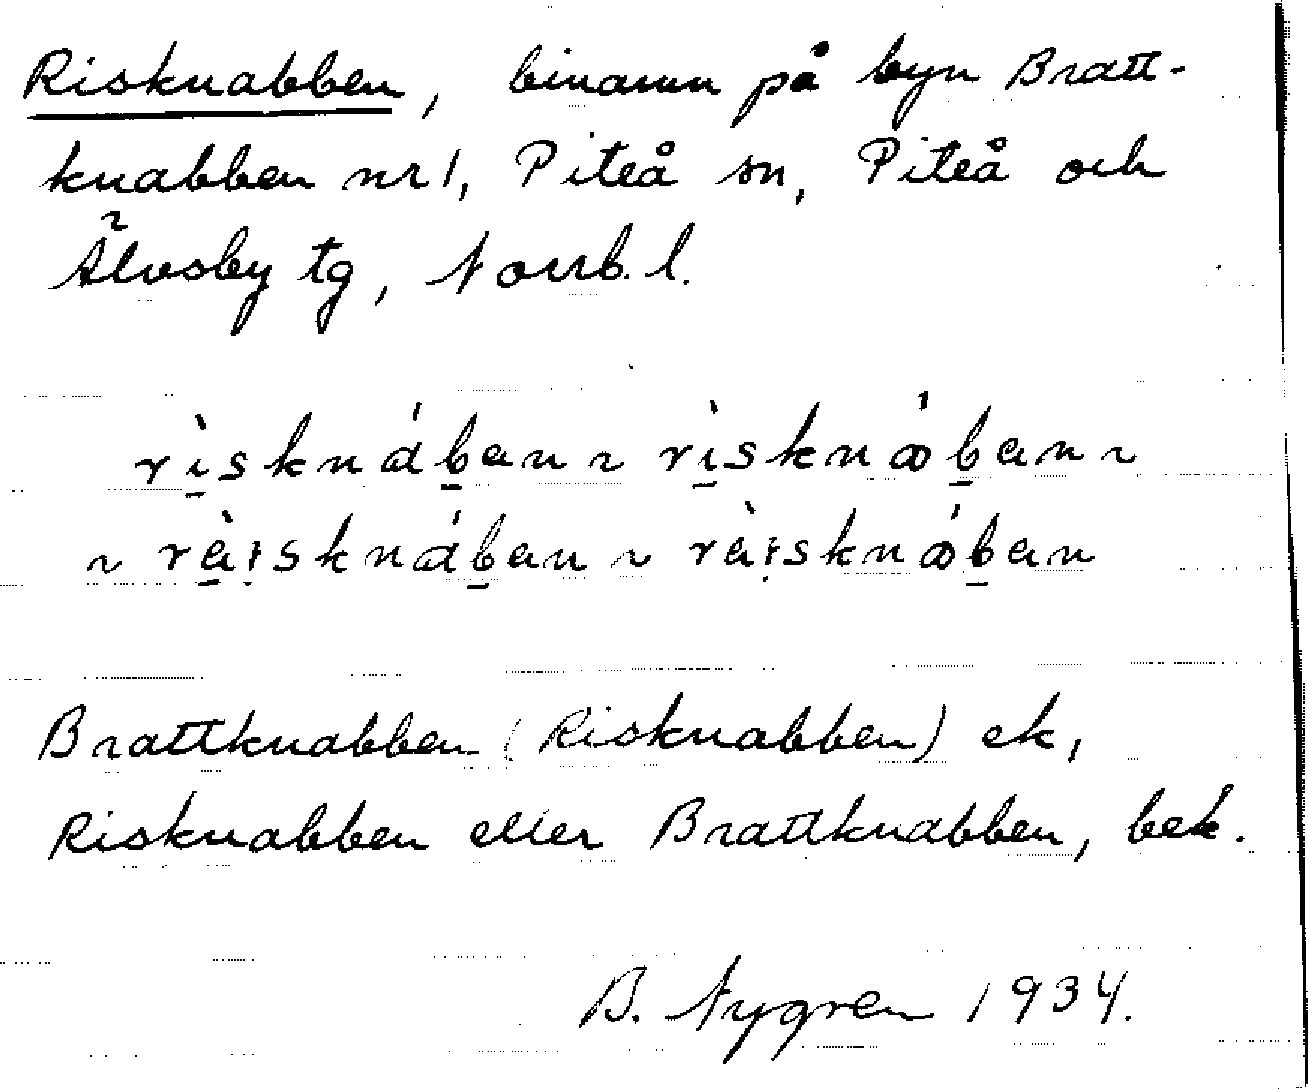 Risknabben, binamn på byn Bratt-
knabben nr 1, Piteå sn, Piteå och
Älvsby tg, Norrb. l.
rı̀sknáb̲an ~ rı̀sknǿb̲an ~
~ rà̲ısknáb̲an ~ ràısknǿb̲an
Brattknabben (Risknabben) ek,
Risknabben eller Brattknabben, bek.
B. Nygren 1934.